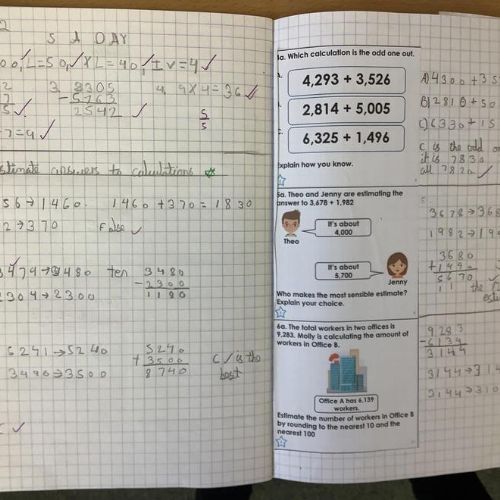 2
S A DAY
00, L=50, XL=40, IV=4
3. 3305
- 5763
2542
4. 9X4=36
5
5
7=9
estimate answers to calculations
56→1460. 1460+370=1830
2→370 False
3474→3480 ten 3480
2304→2300 - 2300
1180
5241→5240 5240
3496→3500 + 3500
8740
C is the
best
4a. Which calculation is the odd one out.
4,293 + 3,526
2,814 + 5,005
6,325 + 1,496
Explain how you know.
5a. Theo and Jenny are estimating the
answer to 3,678 + 1,982
It's about
4,000
Theo
It's about
5,700
Jenny
Who makes the most sensible estimate?
Explain your choice.
6a. The total workers in two offices is
9,283. Molly is calculating the amount of
workers in Office B.
Office A has 6,139
workers.
Estimate the number of workers in Office B
by rounding to the nearest 10 and the
nearest 100
A) 4300+35
B) 2810+50
C) 6330+15
C is the odd
it is 7830
all 7820
3678→36
1982→19
3680
5670
the
9283
- 6139
3144
3144→314
3144→310